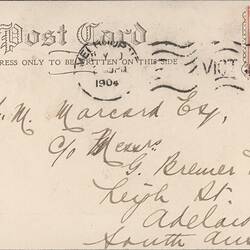 Post Card
RESS ONLY TO BE WRITTEN ON THIS SIDE
1904
VICT
M. Marcard Esq,
c/o Messrs
G. Bremer
Leigh St.
Adelai
South Au